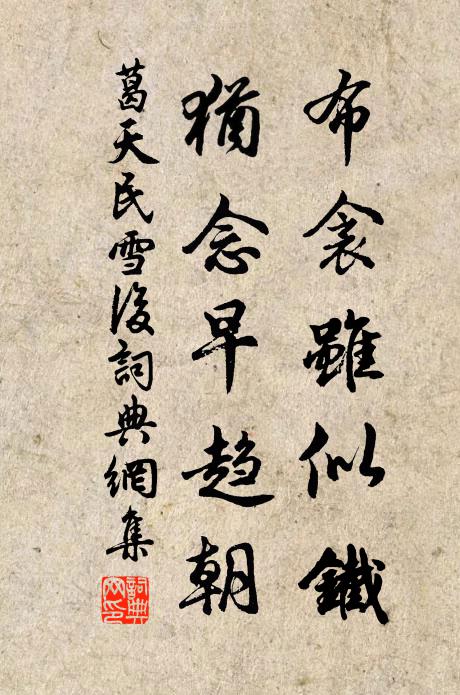 布衾雖似鐵
猶念早趨朝
葛天民雪後詞典網集
詞典網印